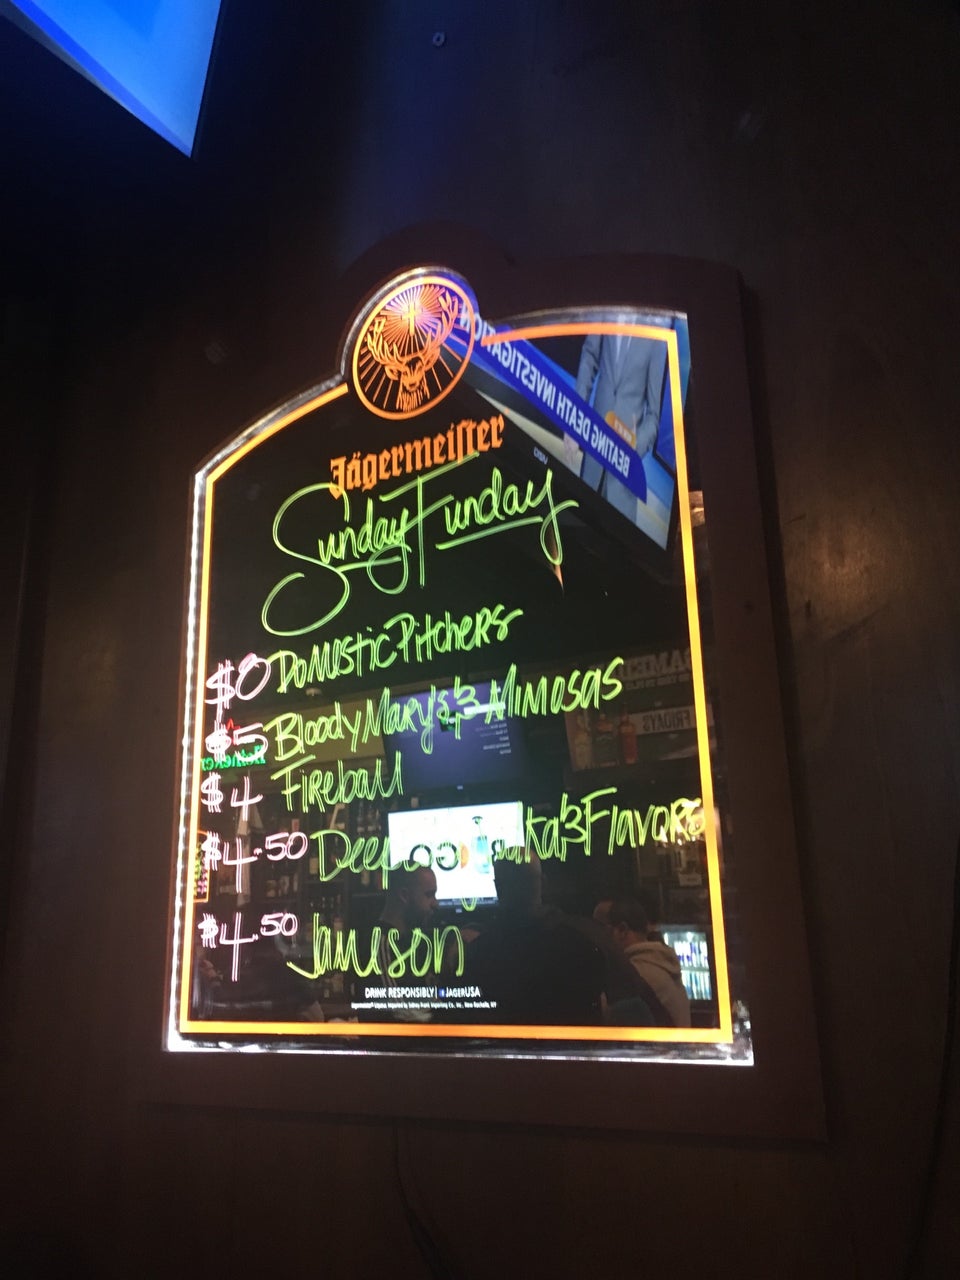 Jägermeister
Sunday Funday
$8 Domestic Pitchers
$5 Bloody Mary's & Mimosas
$4 Fireball
$4.50 Deep & Flavors
$4.50 Jameson
DRINK RESPONSIBLY | JÄGERUSA
BEATING DEATH INVESTIGATION
Heineken
FRIDAYS